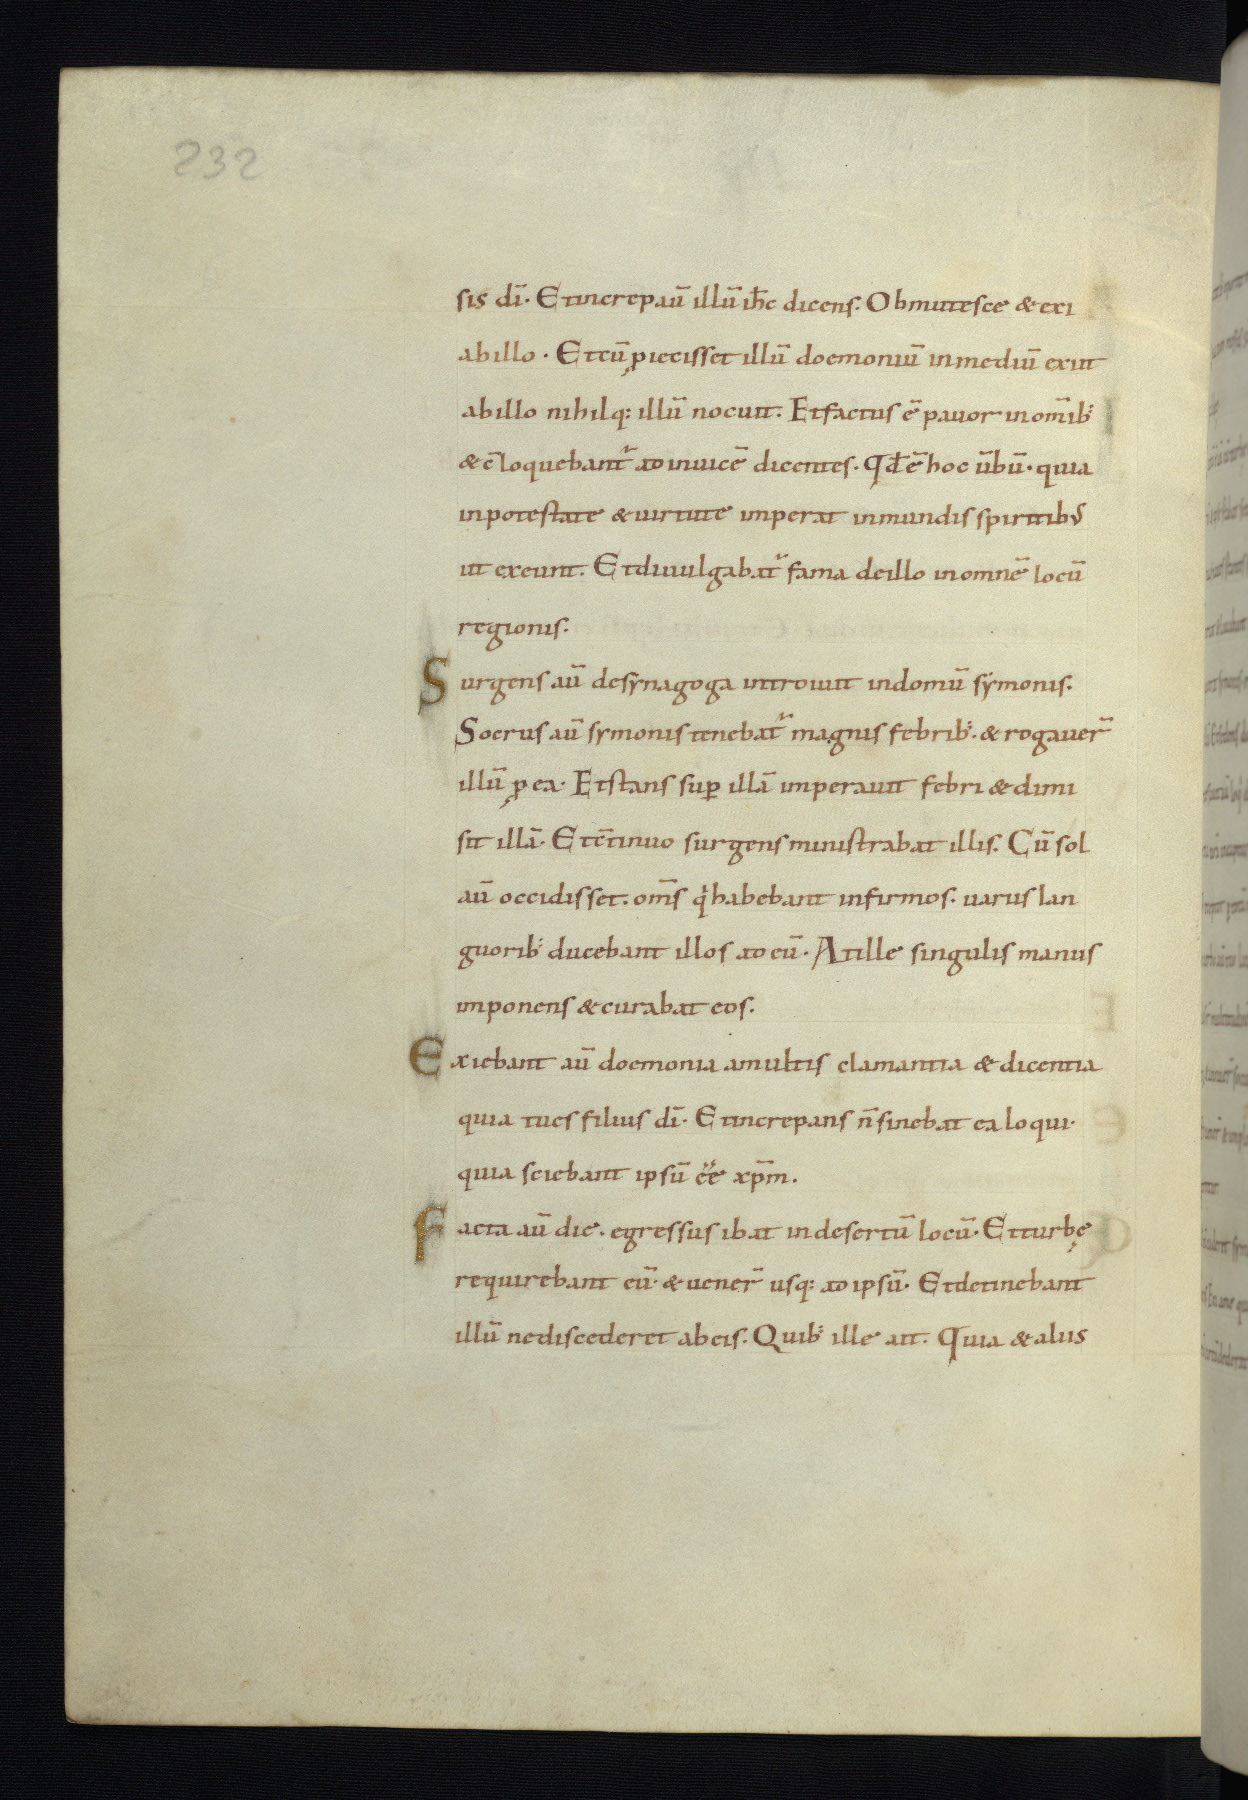 232
sis dī· Et increpaū illū ih̄c dicens. Obmutesce & exi
ab illo· Et cū ꝓiecisset illū doemoniū in mediū exiit
ab illo nihilq; illū nocuit. Et factus ē pauor in om̄ib;
& c̄loquebant̃ ad inuicē dicentes. Qd̄ ē hoc ūbū· quia
in potestate & uirtute imperat inmundis spiritib;
ut exeunt. Et diuulgabat̃ fama de illo in omnē locū
regionis.
Surgens aū de synagoga introiuit in domū symonis.
Socrus aū symonis tenebat̃ magnis febrib;. & rogauer̃
illū ꝓ ea· Et stans suꝑ illā imperauit febri & dimi
sit illā· Et c̄tinuo surgens ministrabat illis. Cū sol
aū occidisset. om̄s q̇ habebant infirmos. uariis lan
guorib; ducebant illos ad eū· At ille singulis manus
imponens & curabat eos.
Exiebant aū doemonia a multis clamantia & dicentia
quia tu es filius dī· Et increpans n̄ sinebat ea loqui·
quia sciebant ipsū ēē xp̄m.
Facta aū die. egressus ibat in desertū locū· Et turbę
requirebant eū· & uener̃ usq; ad ipsū· Et detinebant
illū ne discederet ab eis. Quib; ille ait. Quia & aliis